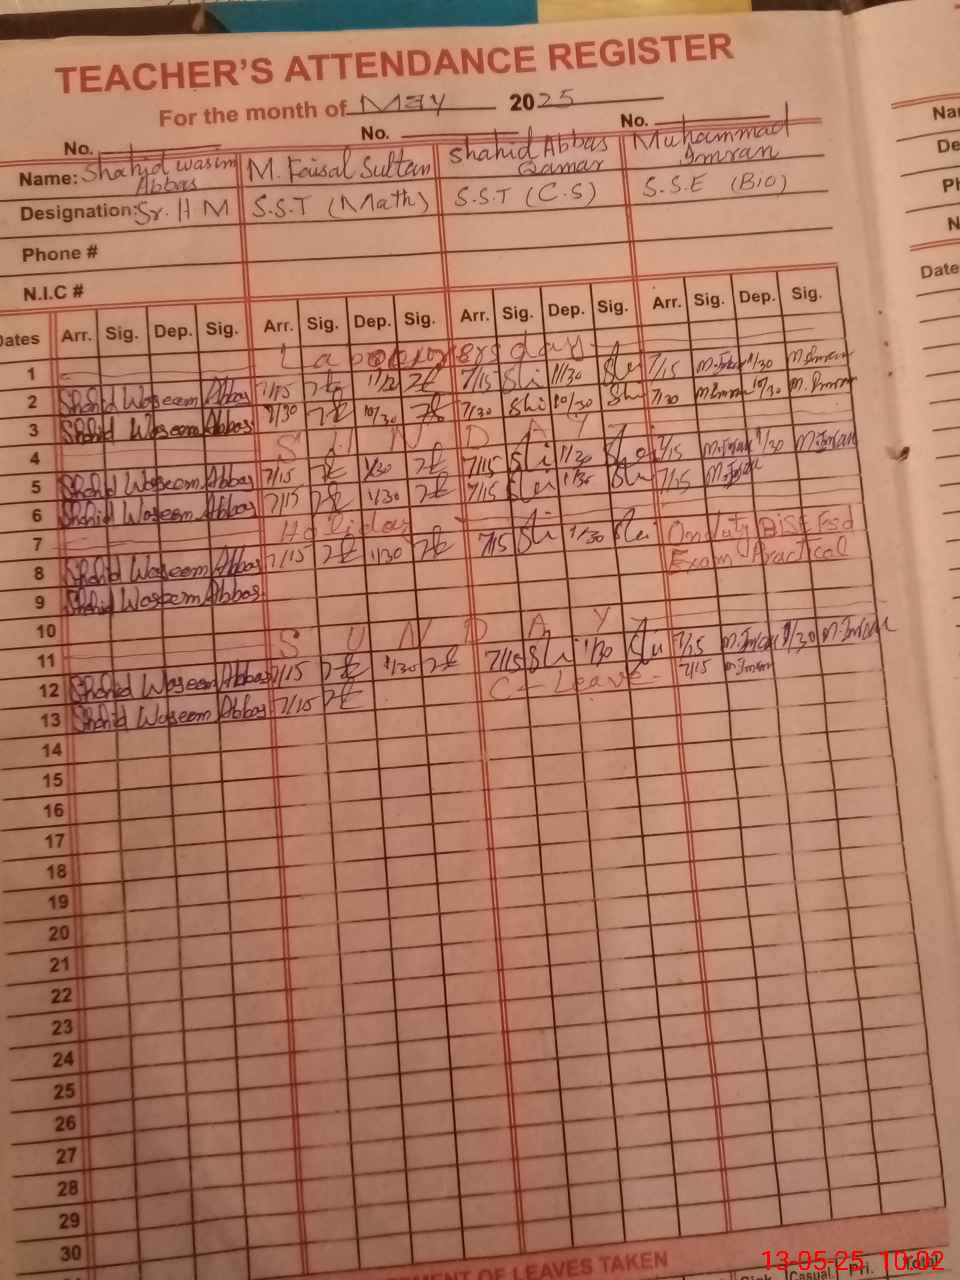 TEACHER'S ATTENDANCE REGISTER
For the month of May 2025
No. No. No.
Name: Shahid Wasim Abbas M. Faisal Sultan Shahid Abbas Qamar Muhammad Imran
Designation: Sr. H M S.S.T (Math) S.S.T (C.S) S.S.E (Bio)
Phone #
N.I.C #
Dates Arr. Sig. Dep. Sig. Arr. Sig. Dep. Sig. Arr. Sig. Dep. Sig. Arr. Sig. Dep. Sig.
1 day
2 Shahid Waseem Abbas 7/15 7/15 11/30 7/15 M. Imran M. Imran
3 Shahid Waseem Abbas 7/30 10/30 7/30 10/30 7/30 10/30 M. Imran
4 S U N D A Y
5 Shahid Waseem Abbas 7/15 1/30 7/15 1/30 7/15 M. Imran 1/30 M. Imran
6 Shahid Waseem Abbas 7/15 1/30 7/15 1/30 7/15 M. Imran
7 Holiday
8 Shahid Waseem Abbas 7/15 1/30 7/15 1/30 On duty BISE Fsd Exam Practical
9 Shahid Waseem Abbas
10
11 S U N D A Y
12 Shahid Waseem Abbas 7/15 1/30 7/15 1/30 7/15 M. Imran 1/30 M. Imran
13 Shahid Waseem Abbas 7/15 C- Leave 7/15 M. Imran
14
15
16
17
18
19
20
21
22
23
24
25
26
27
28
29
30
MENT OF LEAVES TAKEN
Casual Pri. Total
13-05-25 10:02
Date